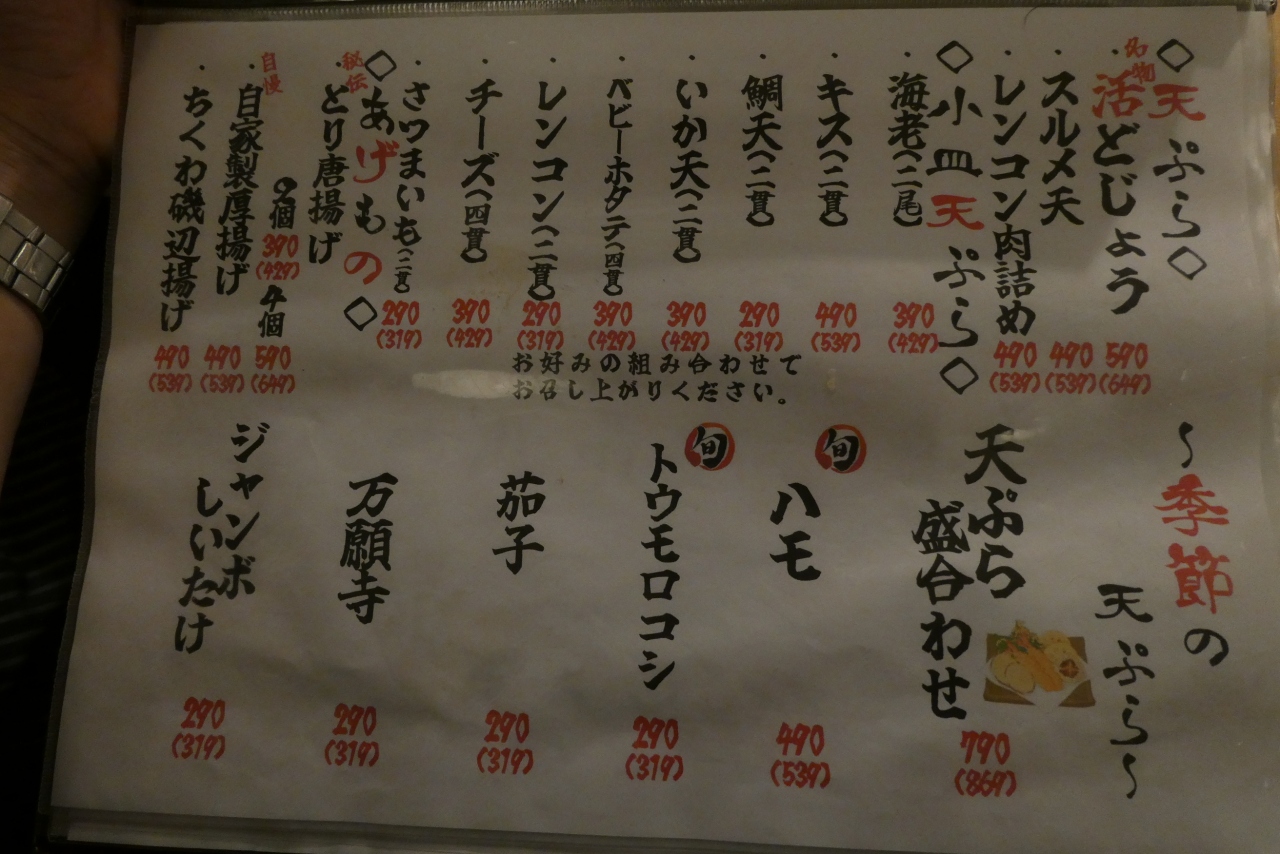 ◇天ぷら◇
・名物 活どじょう 590 (649)
・スルメ天 490 (539)
・レンコン肉詰め 490 (539)
◇小皿天ぷら◇
・海老(二尾) 390 (429)
・キス(二貫) 490 (539)
・鯛天(二貫) 290 (319)
・いか天(二貫) 390 (429)
・ベビーホタテ(四貫) 390 (429)
・レンコン(二貫) 290 (319)
・チーズ(四貫) 390 (429)
・さつまいも(二貫) 290 (319)
お好みの組み合わせで
お召し上がりください。
◇あげもの◇
・秘伝 とり唐揚げ
2個 390 (429) 4個 590 (649)
・自慢 自家製厚揚げ 490 (539)
・ちくわ磯辺揚げ 490 (539)
〜季節の
天ぷら〜
天ぷら
盛合わせ
790 (869)
旬 ハモ 490 (539)
旬 トウモロコシ 290 (319)
茄子 290 (319)
万願寺 290 (319)
ジャンボ
しいたけ
290 (319)